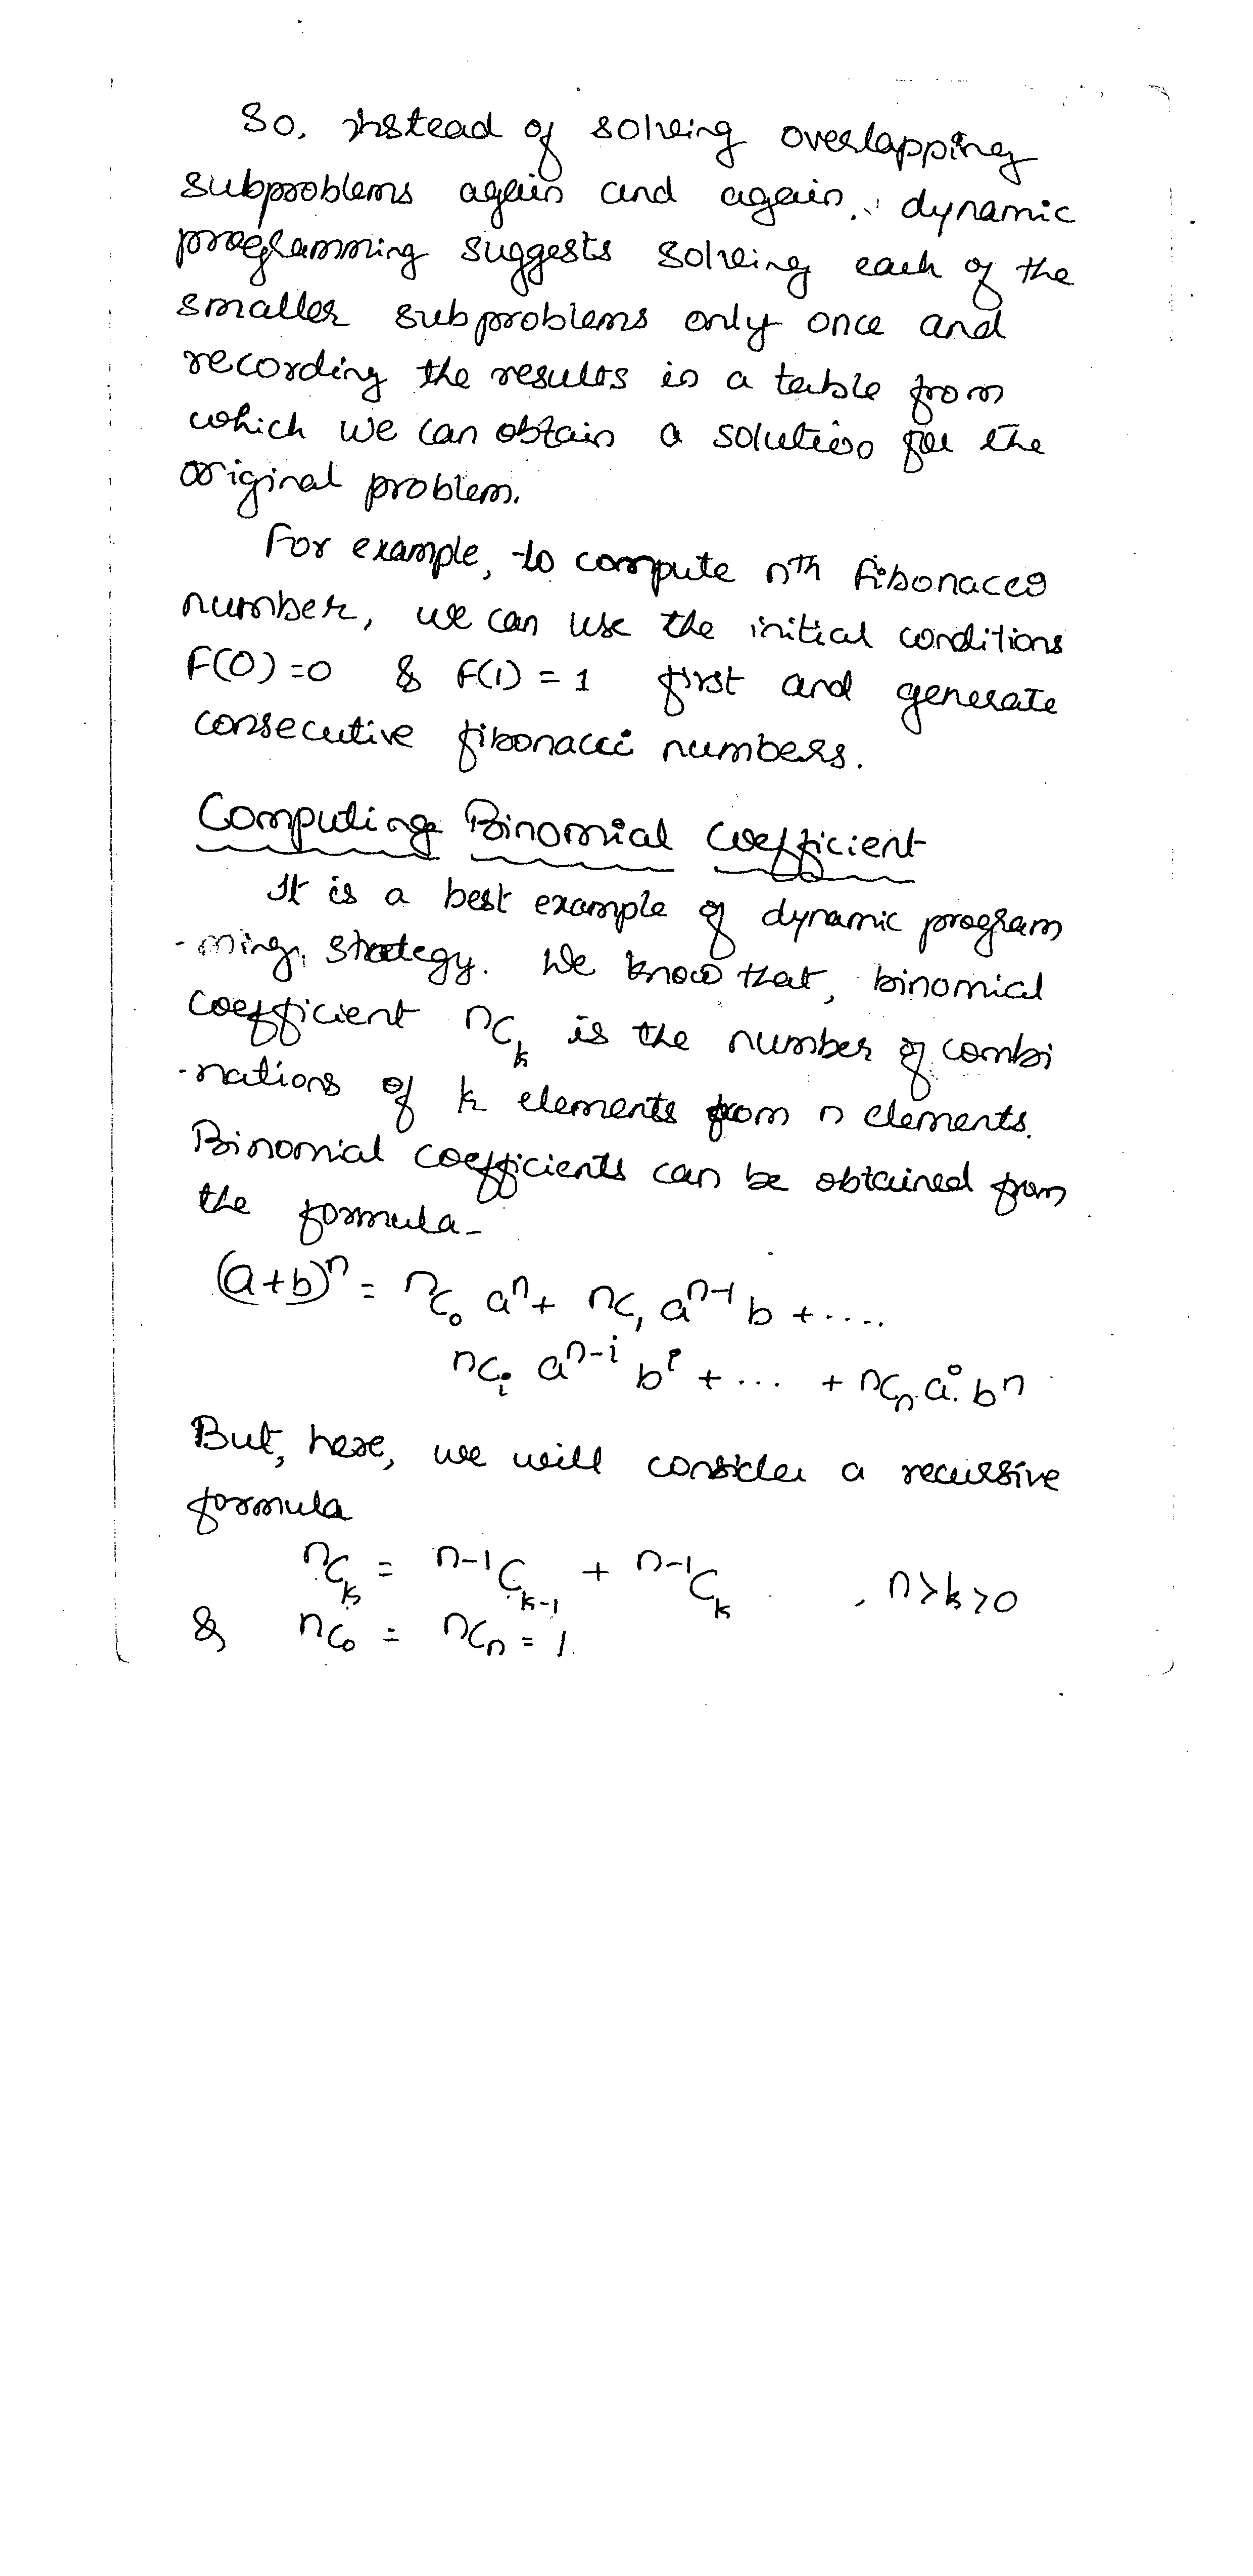 So, instead of solving overlapping
subproblems again and again, dynamic
programming suggests solving each of the
smaller subproblems only once and
recording the results in a table from
which we can obtain a solution for the
original problem.
For example, to compute nth fibonacci
number, we can use the initial conditions
F(0) = 0 & F(1) = 1 first and generate
consecutive fibonacci numbers.
Computing Binomial Coefficient
It is a best example of dynamic program
-ming strategy. We know that, binomial
coefficient nCₖ is the number of combi
-nations of k elements from n elements.
Binomial coefficients can be obtained from
the formula-
(a+b)ⁿ = nC₀ aⁿ + nC₁ aⁿ⁻¹ b + ....
nCᵢ aⁿ⁻ⁱ bⁱ + ... + nCₙ a⁰ bⁿ
But, here, we will consider a recursive
formula
ⁿCₖ = ⁿ⁻¹Cₖ₋₁ + ⁿ⁻¹Cₖ , n>k>0
& nC₀ = nCₙ = 1